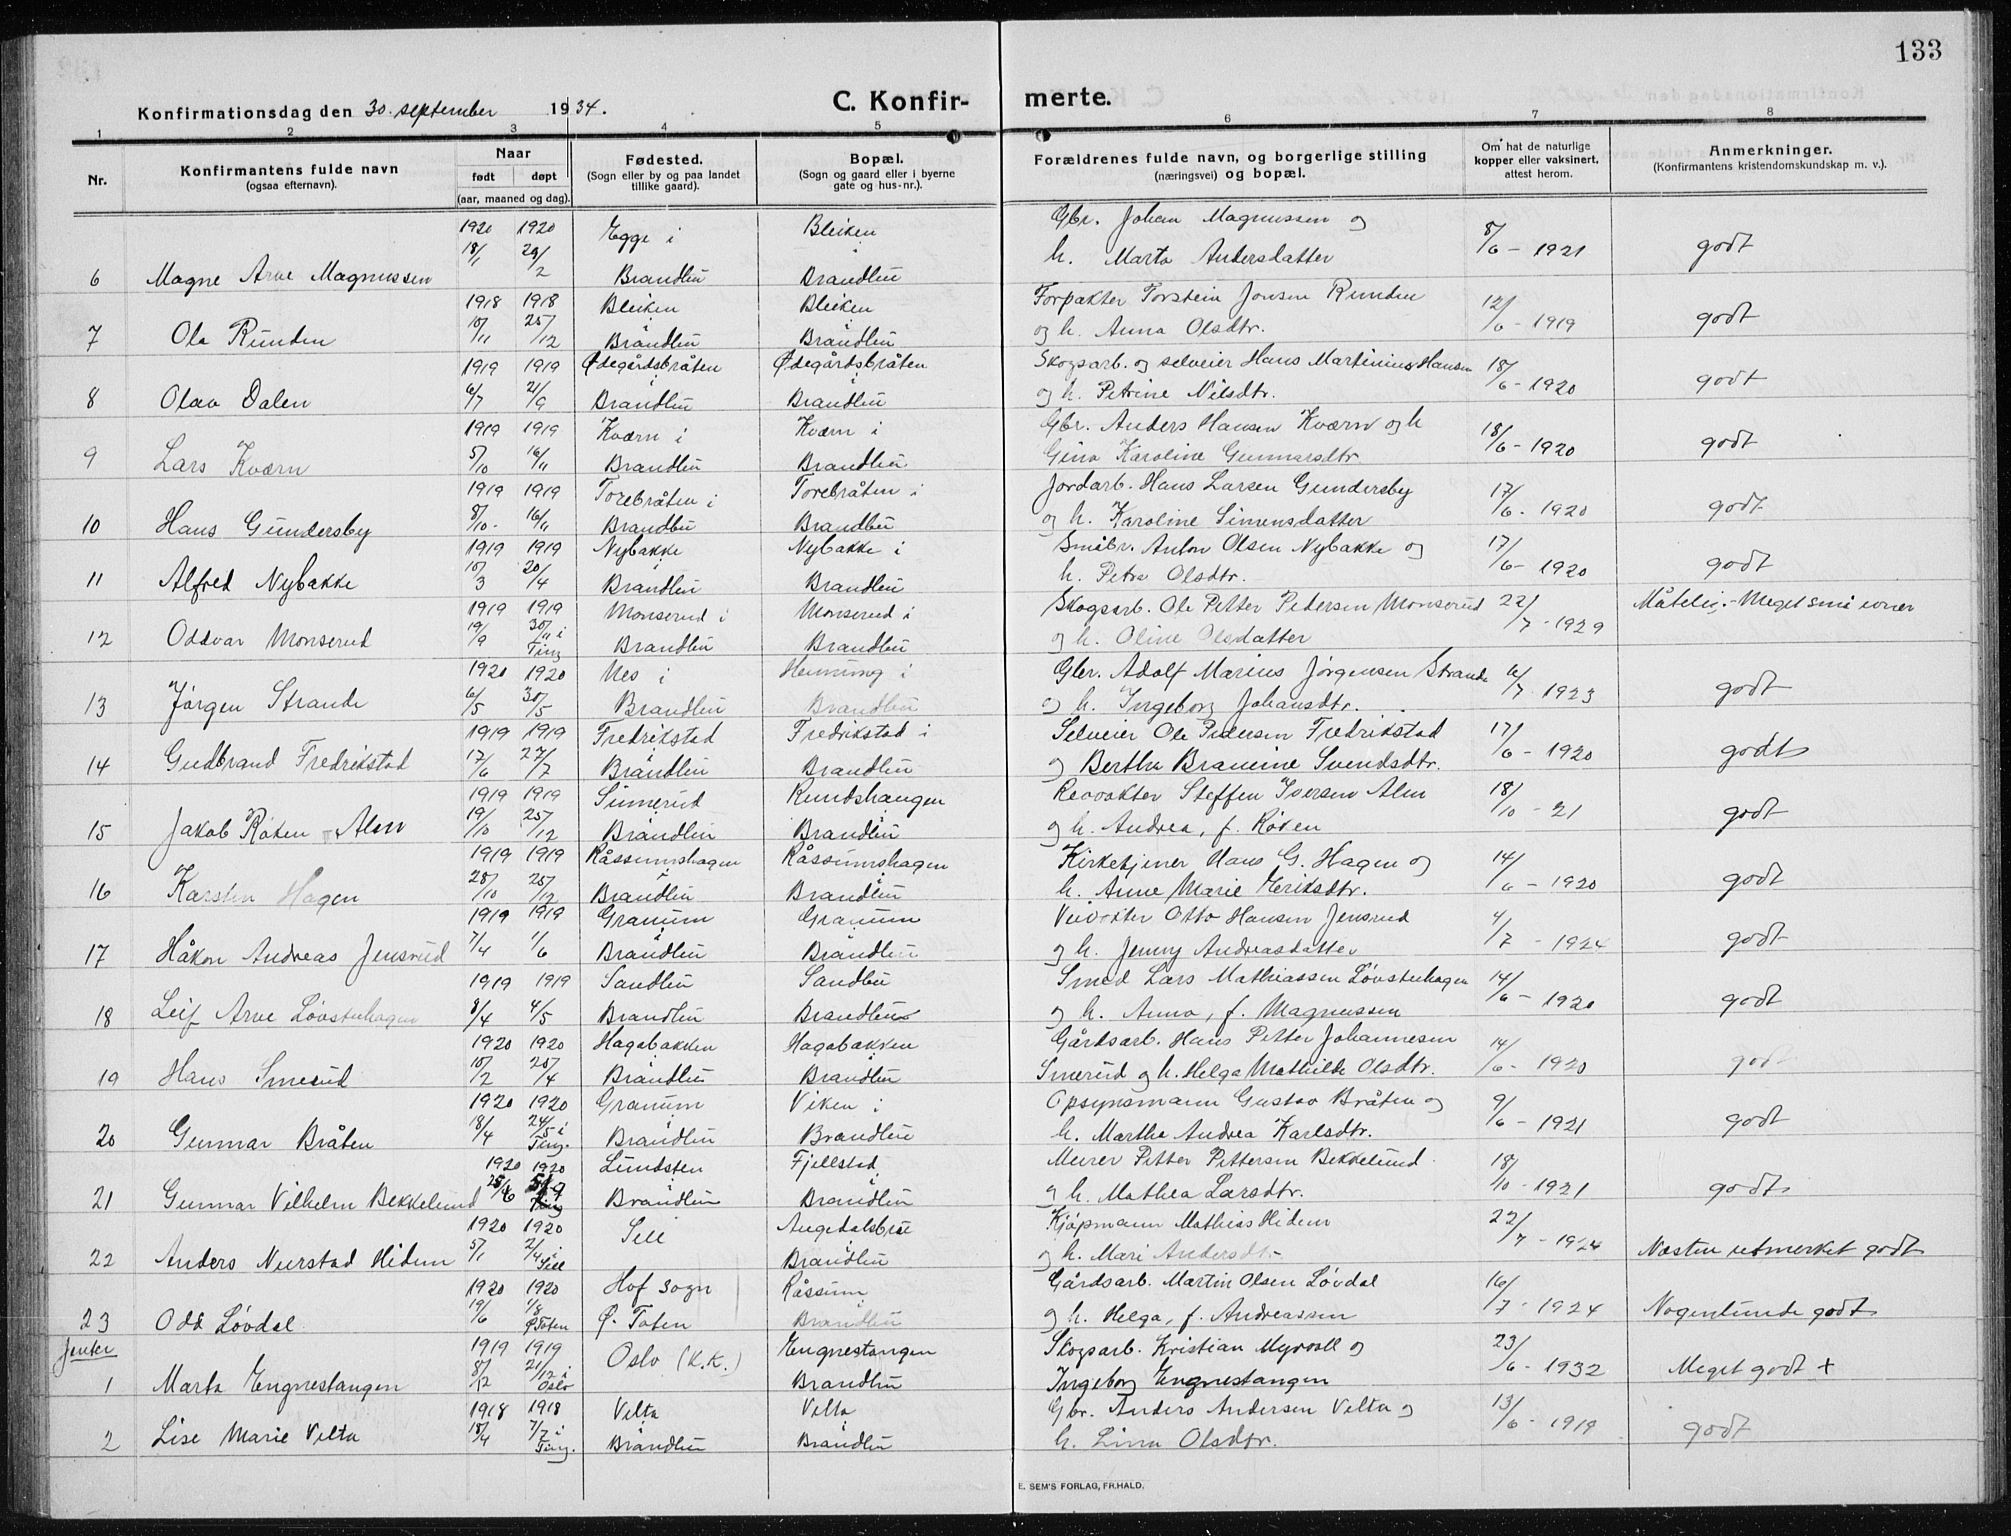 133
Konfirmationsdag den 30. september 1934. C. Konfir- merte.
1 2 3 4 5 6 7 8
Nr. Konfirmantens fulde navn (ogsaa efternavn). Naar født døpt (aar, maaned og dag). Fødested. (Sogn eller by og paa landet tillike gaard). Bopæl. (Sogn og gaard eller i byerne gate og hus-nr.). Forældrenes fulde navn, og borgerlige stilling (næringsvei) og bopæl. Om hat de naturlige kopper eller vaksinert, attest herom. Anmerkninger. (Konfirmantens kristendomskundskap m. v.).
1920 1920 Egge i Bleiken Gbr. Johan Magnussen og
6 Magne Arve Magnussen 18/1 29/2 Brandbu Brandbu h. Marta Andersdatter 8/6 - 1921 godt
1918 1918 Bleiken i Bleiken i Forpakter Torstein Jonsen Runden
7 Ola Runden 10/11 25/12 Brandbu Brandbu og h. Anna Olsdtr. 12/6 - 1919 godt
1919 1919 Ødegårdsbråten i Ødegårdsbråten i Skogsarb. og selveier Hans Martinius Hansen
8 Olav Dalen 6/7 21/9 Brandbu Brandbu og h. Petrine Nilsdtr. 18/6 - 1920 godt
1919 1919 Kværn i Kværn i Gbr. Anders Hansen Kværn og h
9 Lars Kværn 5/10 16/11 Brandbu Brandbu Gina Karoline Gunnarsdtr. 18/6 - 1920 godt
1919 1919 Torebråten i Torebråten i Jordarb. Hans Larsen Gundersby
10 Hans Gundersby 8/10 - 16/11 Brandbu Brandbu og h. Karoline Simensdatter 17/6 - 1920 godt
1919 1919 Nybakke i Nybakke i Småbr. Anton Olsen Nybakke og
11 Alfred Nybakke 10/3 20/4 Brandbu Brandbu h. Petra Olsdtr. 17/6 - 1920 godt
1919 1919 Monserud i Monserud i Skogsarb. Ole Petter Pedersen Monserud
12 Oddvar Monserud 19/9 30/11 i Ting. Brandbu Brandbu og h. Oline Olsdatter 22/7 - 1929 Måtelig. - Meget små evner
1920 1920 Nes i Henning i Gbr. Adolf Marius Jørgensen Strande
13 Jørgen Strande 6/5 30/5 Brandbu Brandbu og h. Ingeborg Johansdtr. 6/7 1923 godt
1919 1919 Fredrikstad i Fredrikstad i Selveier Ole Pedersen Fredrikstad
14 Gudbrand Fredrikstad 17/6 27/7 Brandbu Brandbu og Berthe Branine Svendsdtr. 17/6 - 1920 godt
1919 1919 Sinnerud i Rundshaugen i Steffen Iversen Alm
15 Jakob Røken Alm 19/10 25/12 Brandbu Brandbu og h. Andrea, f. Røken 18/10 - 21 godt
1919 1919 Råssumshagen i Råssumshagen i Kirketjener Hans G. Hagen og
16 Karsten Hagen 28/10 25/12 Brandbu Brandbu h. Anne Marie Eriksdtr. 14/6 - 1920 godt
1919 1919 Granum i Granum i Veivokter Otto Hansen Jensrud
17 Håkon Andreas Jensrud 7/4 1/6 Brandbu Brandbu og h. Jenny Andreasdatter 4/7 - 1924 godt
1919 1919 Sandbu Sandbu Smed Lars Mathiassen Løvstuhagen
18 Leif Arve Løvstuhagen 8/4 4/5 Brandbu Brandbu og h. Anna, f. Magnussen 14/6 - 1920 godt
1920 1920 Hagabakken i Hagabakken i Gårdsarb. Hans Petter Johannesen
19 Hans Smerud 10/2 20/4 Brandbu Brandbu Smerud og h. Helga Mathilde Olsdtr. 14/6 - 1920 godt
1920 1920 Granum i Viken i Opsynsmann Gustav Bråten og
20 Gunnar Bråten 18/4 24/5 i Ting. Brandbu Brandbu h. Marthe Andrea Karlsdtr. 9/6 - 1921 godt
1920 1920 Lundsten i Fjellstad i Murer Petter Pettersen Bekkelund
21 Gunnar Vilhelm Bekkelund 25/6 Ting Brandbu Brandbu og h. Mathea Larsdtr. 18/10 - 1921 godt
1920 1920 Sell Augedalsbru i Kjøpmann Mathias Hidem
22 Anders Nurstad Hidem 5/1 2/4 i Sell Brandbu og h. Mari Andersdtr 22/7 - 1924 Næsten utmerket godt
1920 1920 Hof sogn Råssum i Gårdsarb. Martin Olsen Løvdal
23 Odd Løvdal 19/6 1/8 Ø. Toten Ø. Toten Brandbu og h. Helga, f. Andreassen 16/7 - 1924 Nogenlunde godt
Jenter 1919 1919 Oslo (K.K.) Engnestangen Skogsarb. Kristian Myrvoll og
1 Marta Engnestangen 8/12 21/12 i Oslo Brandbu Ingeborg Engnestangen 23/6 - 1932 Meget godt +
1918 1918 Velta i Velta i Gbr. Anders Andersen Velta og
2 Lise Marie Velta 18/4 7/7 i Ting. Brandbu Brandbu h. Lina Olsdtr. 13/6 - 1919 godt
E. SEM'S FORLAG, FR.HALD.